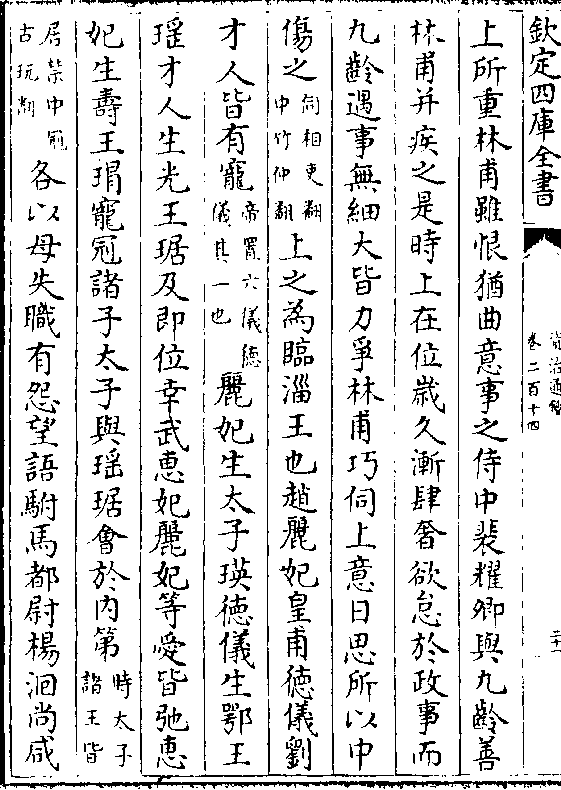 欽定四庫全書
資治通鑑
卷二百十四
二十一
上所重林甫雖恨猶曲意事之侍中裴耀卿與九齡善
林甫并疾之是時上在位歳久漸肆奢欲怠於政事而
九齡遇事無細大皆力爭林甫巧伺上意日思所以中
傷之伺相吏翻中竹仲翻上之為臨淄王也趙麗妃皇甫徳儀劉
才人皆有寵帝置六儀徳儀其一也麗妃生太子瑛徳儀生鄂王
瑶才人生光王琚及即位幸武恵妃麗妃等愛皆弛恵
妃生壽王瑁寵冠諸子太子與瑶琚會於内第時太子諸王皆
居禁中冠古玩翻各以母失職有怨望語駙馬都尉楊洄尚咸